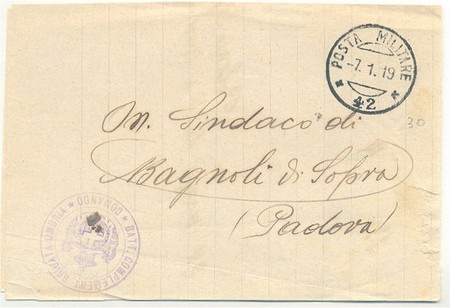 POSTA MILITARE
-7.1.19
42
30
Al Sindaco di
Bagnoli di Sopra
(Padova)
COMANDO * BATT. COMPLEMENT. BRIGATA UMBRIA *